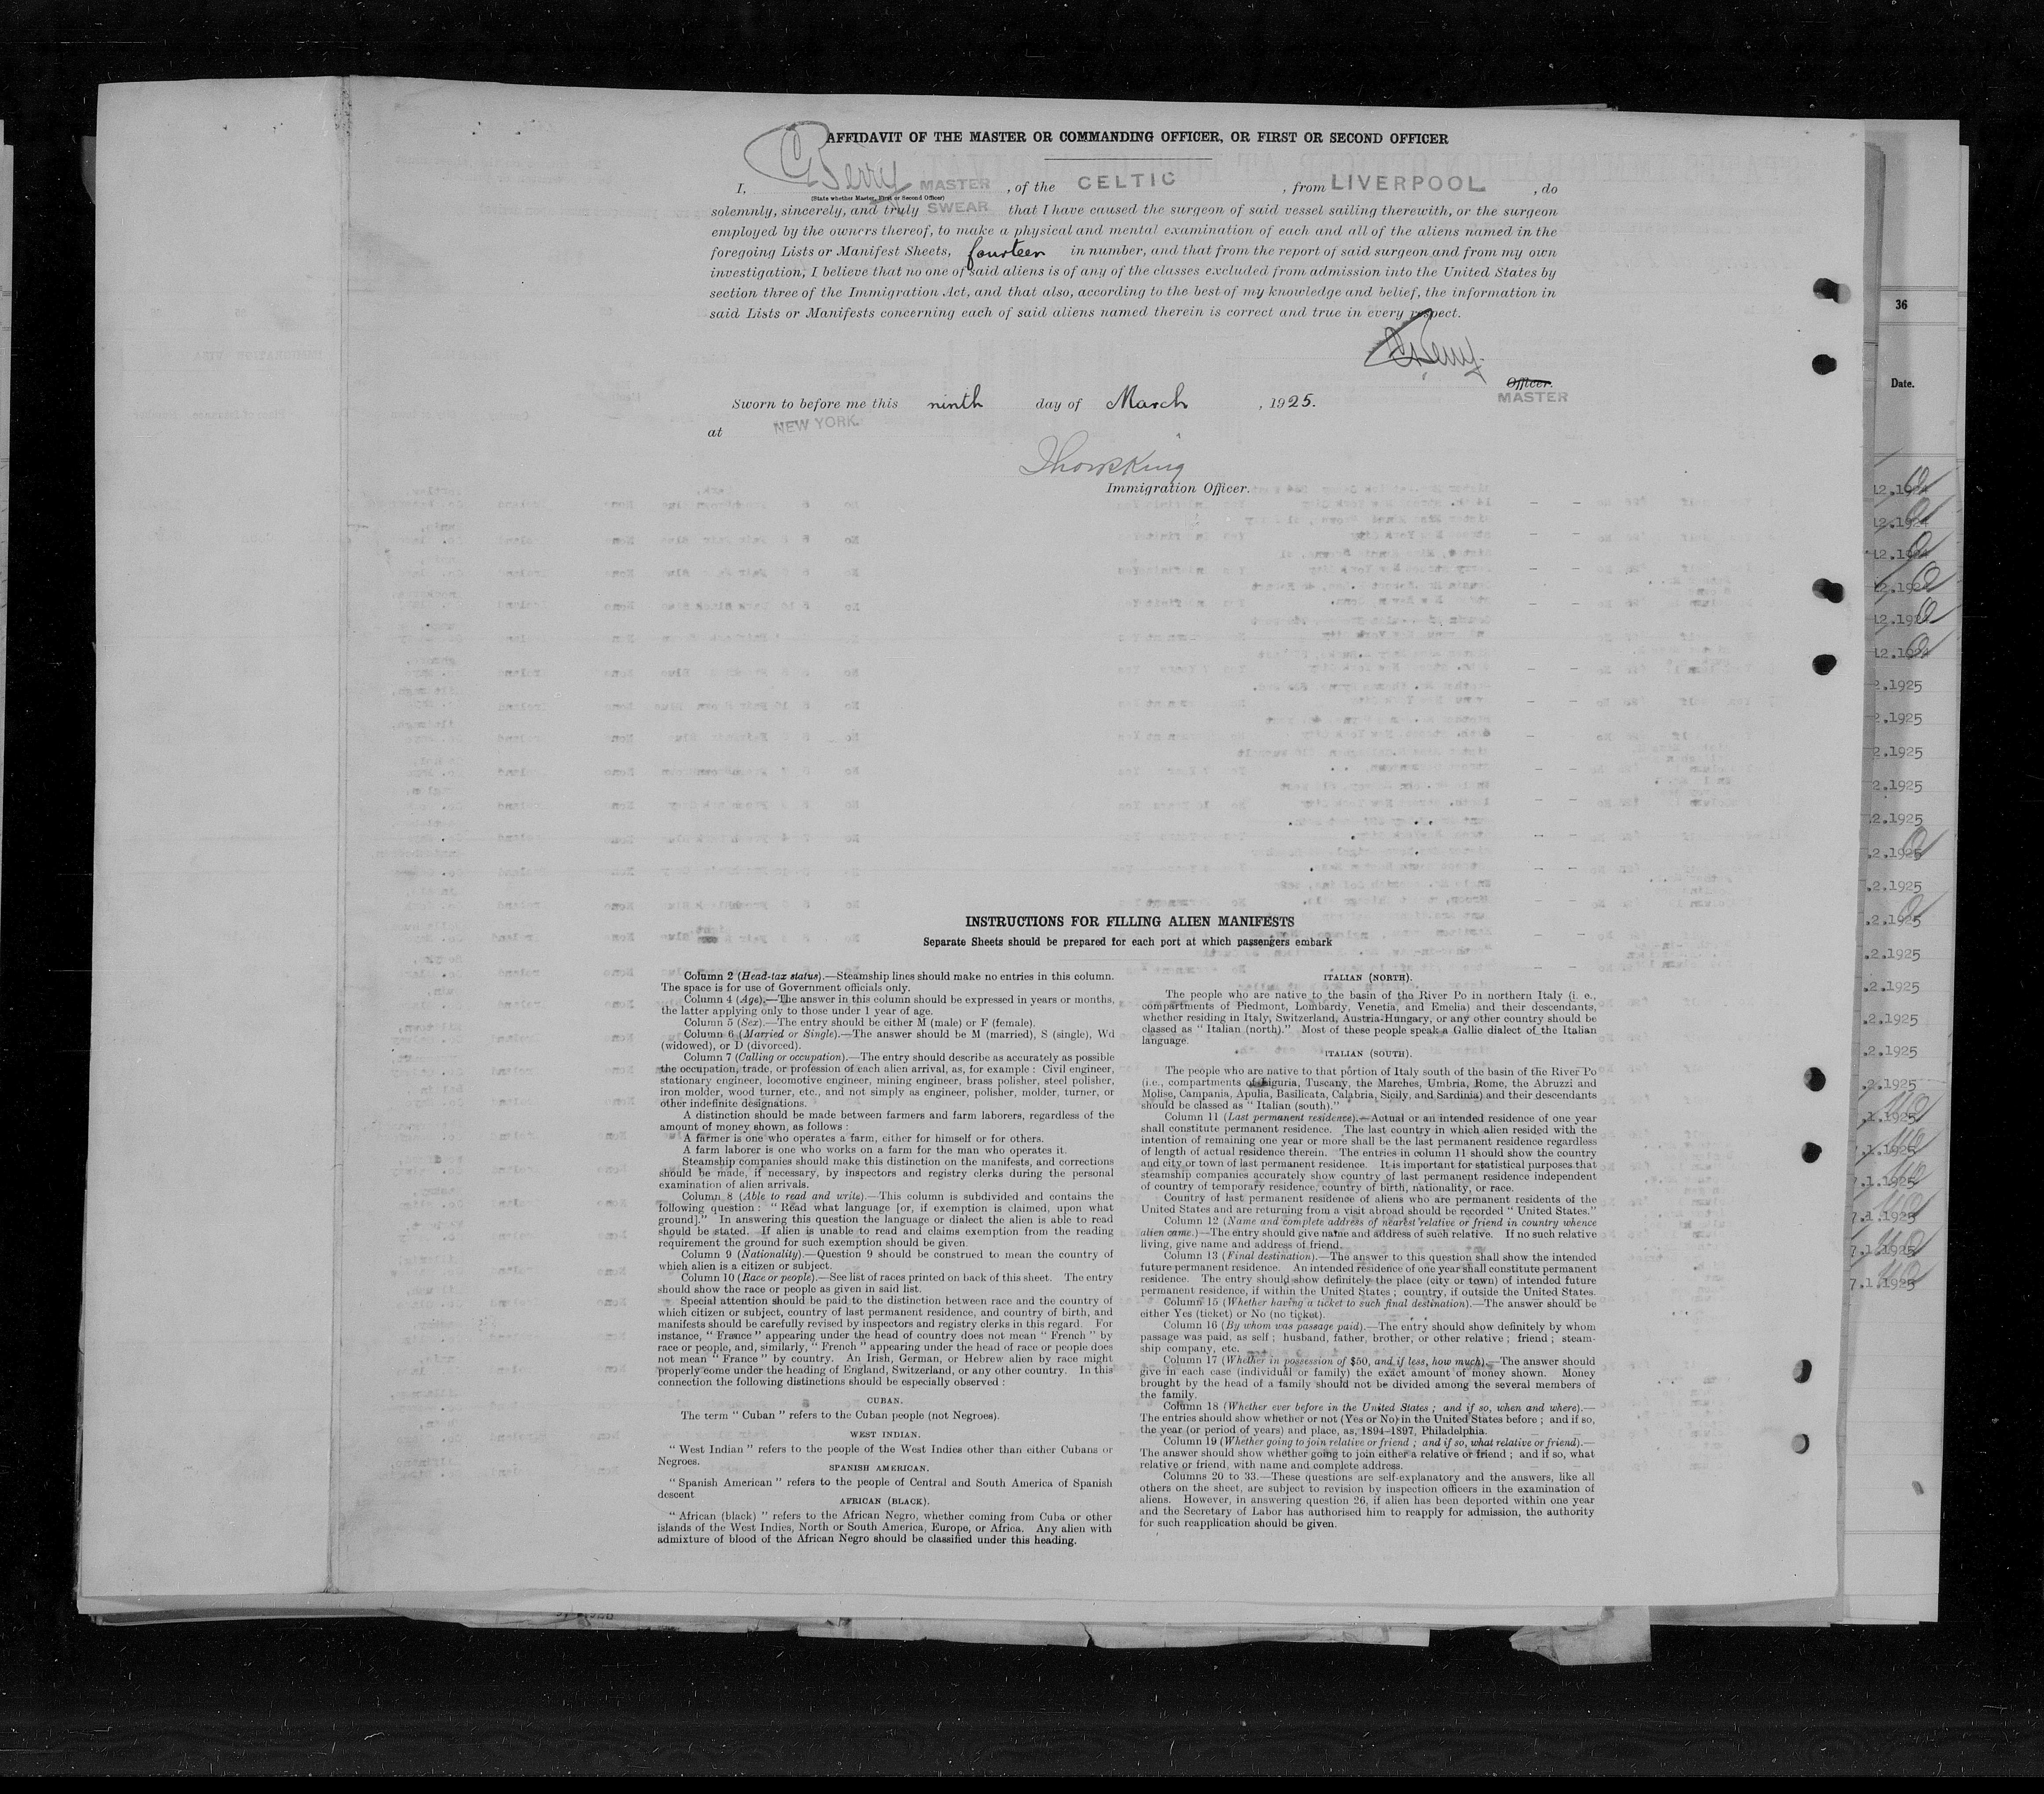 AFFIDAVIT OF THE MASTER OR COMMANDING OFFICER, OR FIRST OR SECOND OFFICER
I, Berry MASTER, of the CELTIC, from LIVERPOOL, do
(State whether Master, First or Second Officer)
solemnly, sincerely, and truly SWEAR that I have caused the surgeon of said vessel sailing therewith, or the surgeon
employed by the owners thereof, to make a physical and mental examination of each and all of the aliens named in the
foregoing Lists or Manifest Sheets, fourteen in number, and that from the report of said surgeon and from my own
investigation, I believe that no one of said aliens is of any of the classes excluded from admission into the United States by
section three of the Immigration Act, and that also, according to the best of my knowledge and belief, the information in
said Lists or Manifests concerning each of said aliens named therein is correct and true in every respect.
Berry.
Officer.
MASTER
Sworn to before me this ninth day of March, 1925.
at NEW YORK.
Immigration Officer.
INSTRUCTIONS FOR FILLING ALIEN MANIFESTS
Separate Sheets should be prepared for each port at which passengers embark
Column 2 (Head-tax status).—Steamship lines should make no entries in this column.
The space is for use of Government officials only.
Column 4 (Age).—The answer in this column should be expressed in years or months,
the latter applying only to those under 1 year of age.
Column 5 (Sex).—The entry should be either M (male) or F (female).
Column 6 (Married or Single).—The answer should be M (married), S (single), Wd
(widowed), or D (divorced).
Column 7 (Calling or occupation).—The entry should describe as accurately as possible
the occupation, trade, or profession of each alien arrival, as, for example : Civil engineer,
stationary engineer, locomotive engineer, mining engineer, brass polisher, steel polisher,
iron molder, wood turner, etc., and not simply as engineer, polisher, molder, turner, or
other indefinite designations.
A distinction should be made between farmers and farm laborers, regardless of the
amount of money shown, as follows :
A farmer is one who operates a farm, either for himself or for others.
A farm laborer is one who works on a farm for the man who operates it.
Steamship companies should make this distinction on the manifests, and corrections
should be made, if necessary, by inspectors and registry clerks during the personal
examination of alien arrivals.
Column 8 (Able to read and write).—This column is subdivided and contains the
following question : " Read what language [or, if exemption is claimed, upon what
ground]." In answering this question the language or dialect the alien is able to read
should be stated. If alien is unable to read and claims exemption from the reading
requirement the ground for such exemption should be given.
Column 9 (Nationality).—Question 9 should be construed to mean the country of
which alien is a citizen or subject.
Column 10 (Race or people).—See list of races printed on back of this sheet. The entry
should show the race or people as given in said list.
Special attention should be paid to the distinction between race and the country of
which citizen or subject, country of last permanent residence, and country of birth, and
manifests should be carefully revised by inspectors and registry clerks in this regard. For
instance, " France " appearing under the head of country does not mean " French " by
race or people, and, similarly, " French " appearing under the head of race or people does
not mean " France " by country. An Irish, German, or Hebrew alien by race might
properly come under the heading of England, Switzerland, or any other country. In this
connection the following distinctions should be especially observed :
CUBAN.
The term " Cuban " refers to the Cuban people (not Negroes).
WEST INDIAN.
" West Indian " refers to the people of the West Indies other than either Cubans or
Negroes.
SPANISH AMERICAN.
" Spanish American " refers to the people of Central and South America of Spanish
descent
AFRICAN (BLACK).
" African (black) " refers to the African Negro, whether coming from Cuba or other
islands of the West Indies, North or South America, Europe, or Africa. Any alien with
admixture of blood of the African Negro should be classified under this heading.
ITALIAN (NORTH).
The people who are native to the basin of the River Po in northern Italy (i. e.,
compartments of Piedmont, Lombardy, Venetia, and Emelia) and their descendants,
whether residing in Italy, Switzerland, Austria-Hungary, or any other country should be
classed as " Italian (north)." Most of these people speak a Gallic dialect of the Italian
language.
ITALIAN (SOUTH).
The people who are native to that portion of Italy south of the basin of the River Po
(i.e., compartments of Liguria, Tuscany, the Marches, Umbria, Rome, the Abruzzi and
Molise, Campania, Apulia, Basilicata, Calabria, Sicily, and Sardinia) and their descendants
should be classed as " Italian (south)."
Column 11 (Last permanent residence).—Actual or an intended residence of one year
shall constitute permanent residence. The last country in which alien resided with the
intention of remaining one year or more shall be the last permanent residence regardless
of length of actual residence therein. The entries in column 11 should show the country
and city or town of last permanent residence. It is important for statistical purposes that
steamship companies accurately show country of last permanent residence independent
of country of temporary residence, country of birth, nationality, or race.
Country of last permanent residence of aliens who are permanent residents of the
United States and are returning from a visit abroad should be recorded " United States."
Column 12 (Name and complete address of nearest relative or friend in country whence
alien came.)—The entry should give name and address of such relative. If no such relative
living, give name and address of friend.
Column 13 (Final destination).—The answer to this question shall show the intended
future permanent residence. An intended residence of one year shall constitute permanent
residence. The entry should show definitely the place (city or town) of intended future
permanent residence, if within the United States ; country, if outside the United States.
Column 15 (Whether having a ticket to such final destination).—The answer should be
either Yes (ticket) or No (no ticket).
Column 16 (By whom was passage paid).—The entry should show definitely by whom
passage was paid, as self ; husband, father, brother, or other relative ; friend ; steam-
ship company, etc.
Column 17 (Whether in possession of $50, and if less, how much).—The answer should
give in each case (individual or family) the exact amount of money shown. Money
brought by the head of a family should not be divided among the several members of
the family.
Column 18 (Whether ever before in the United States ; and if so, when and where).—
The entries should show whether or not (Yes or No) in the United States before ; and if so,
the year (or period of years) and place, as, 1894–1897, Philadelphia.
Column 19 (Whether going to join relative or friend ; and if so, what relative or friend).—
The answer should show whether going to join either a relative or friend ; and if so, what
relative or friend, with name and complete address.
Columns 20 to 33.—These questions are self-explanatory and the answers, like all
others on the sheet, are subject to revision by inspection officers in the examination of
aliens. However, in answering question 26, if alien has been deported within one year
and the Secretary of Labor has authorised him to reapply for admission, the authority
for such reapplication should be given.
36
Date.
12.1924
12.1924
12.1924
12.1924
12.1924
12.1924
2.1925
2.1925
2.1925
2.1925
2.1925
.2.1925
.2.1925
.2.1925
.2.1925
.2.1925
.2.1925
.2.1925
.2.1925
.1.1925
7.1.1925
7.1.1925
7.1.1925
7.1.1925
7.1.1925